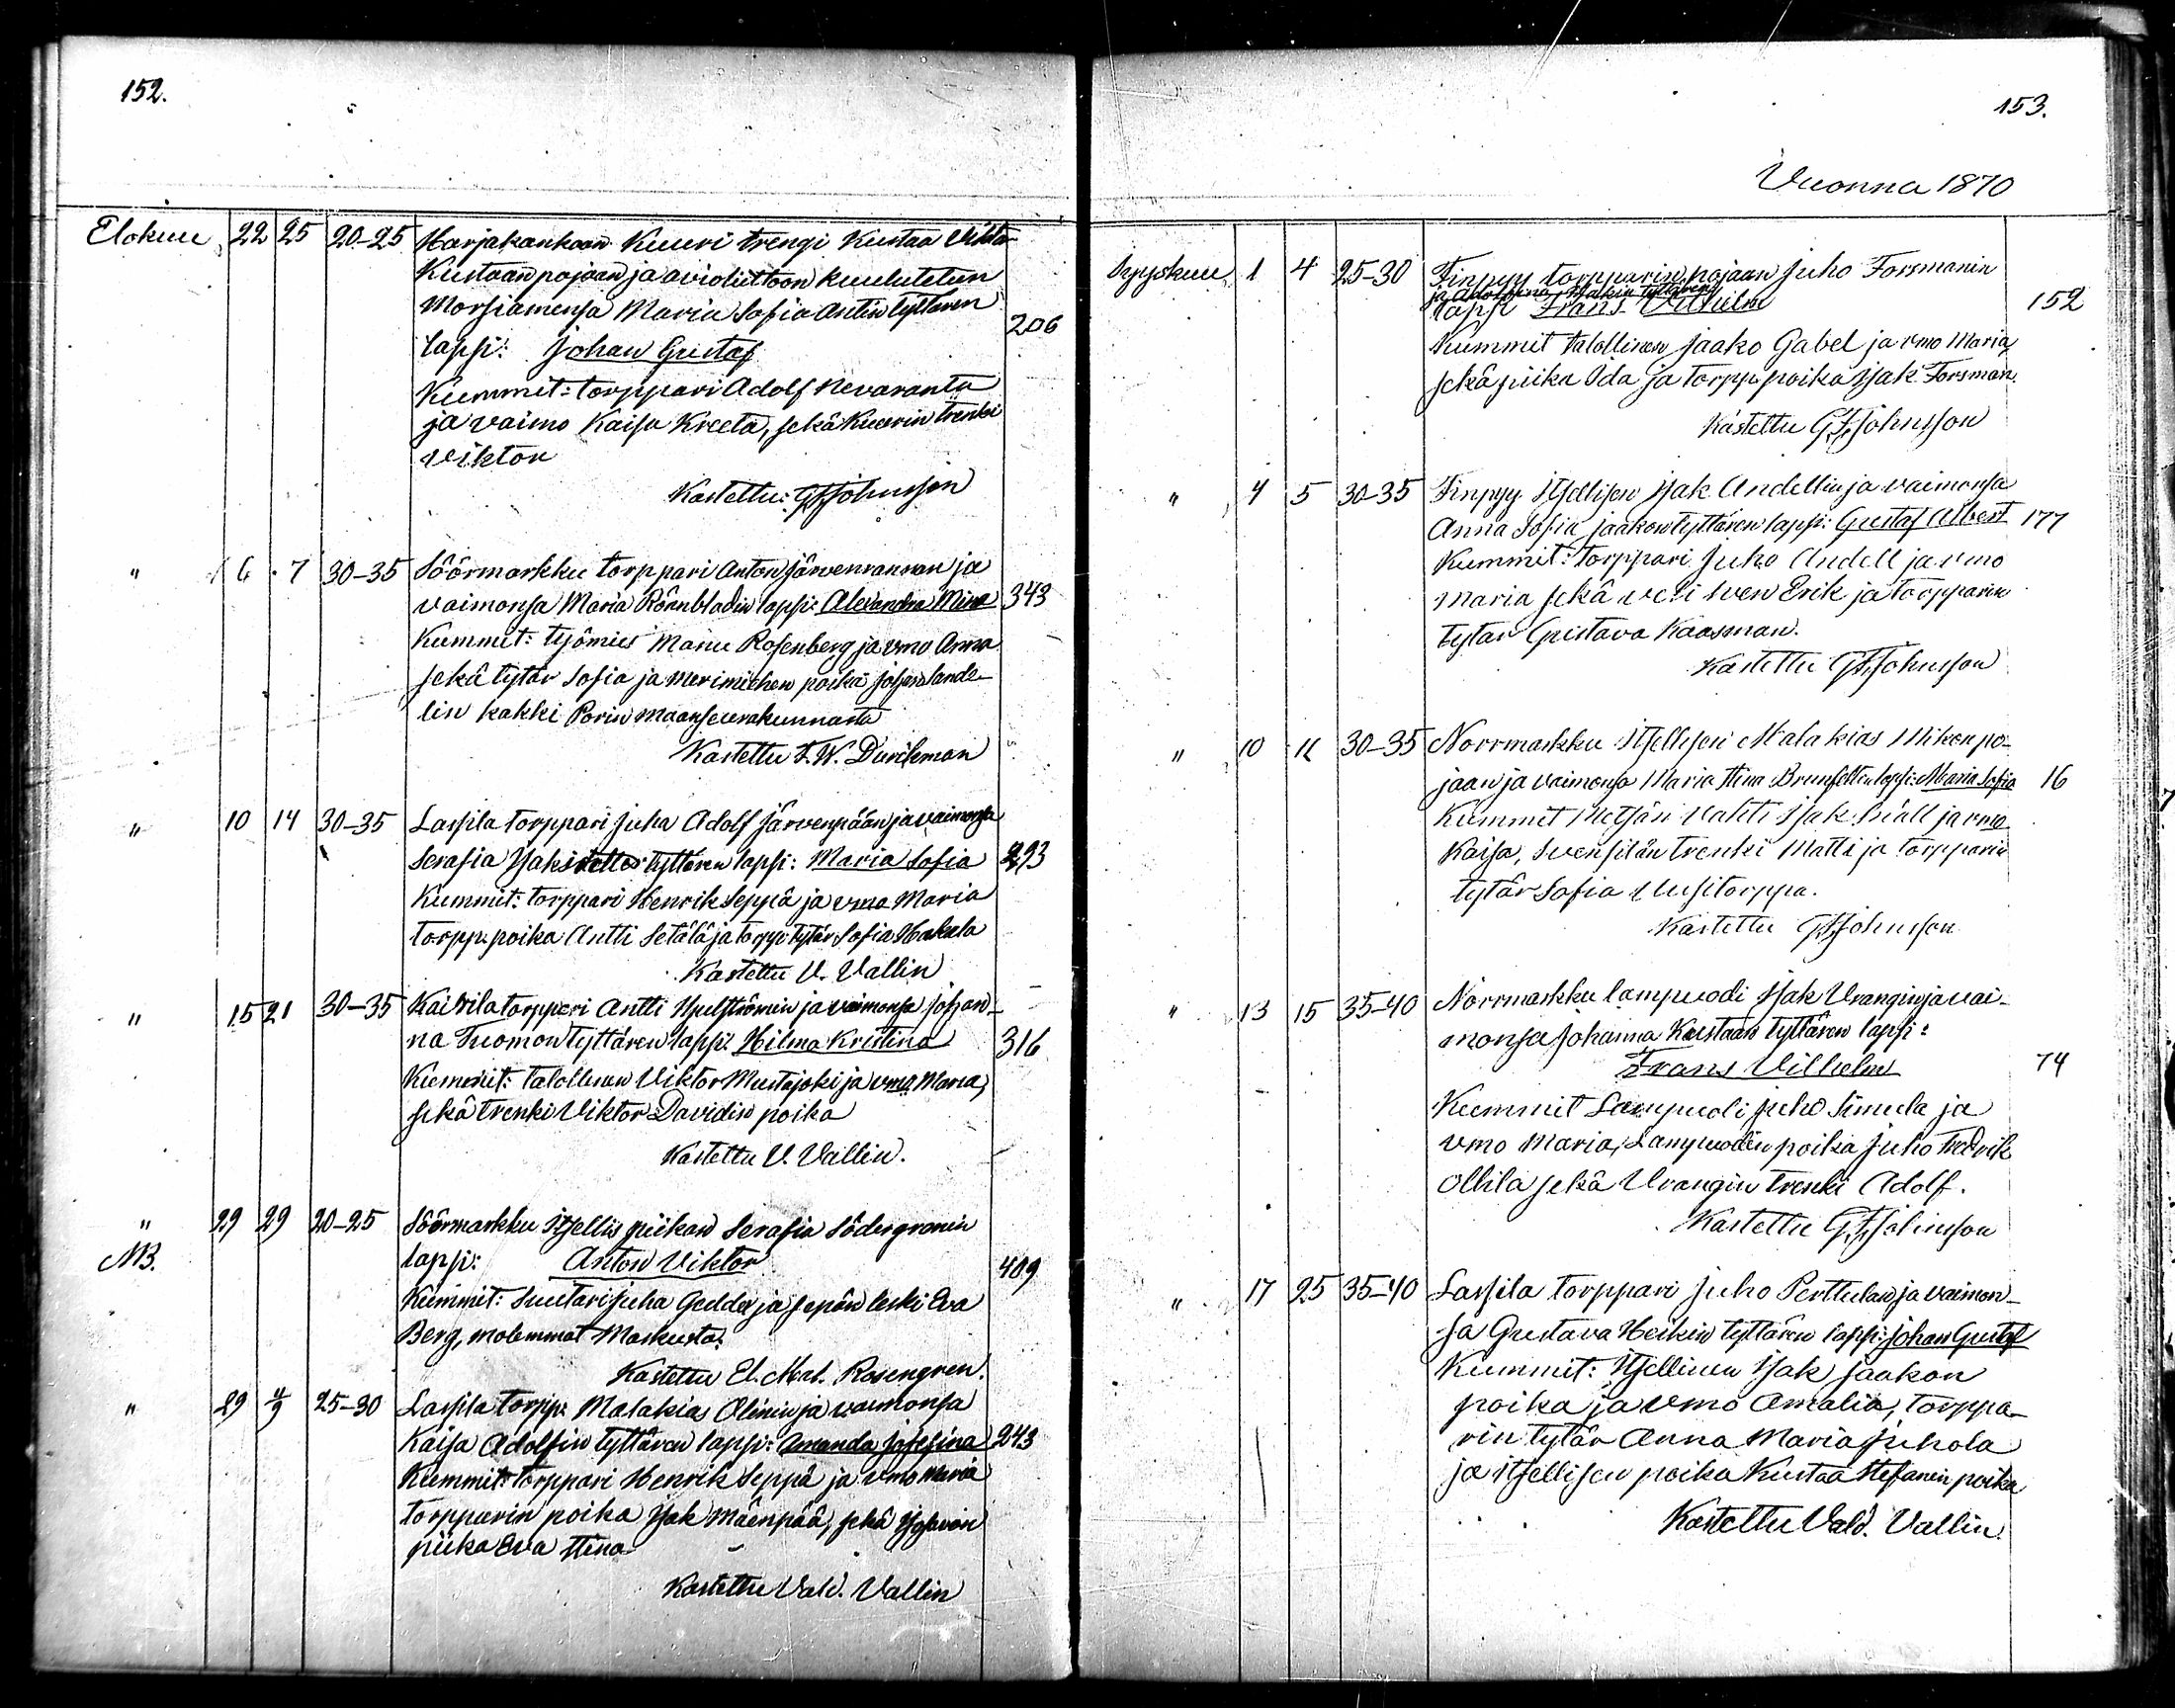 152.
Elokuu 22 25 20-25 Harjakankaan Kuuri trengi Kustaa Viktor
Kustaanpojan ja avioliittoon kuulutetun
Morsiamensa Maria Sofia Antintyttären
206
lapsi: Johan Gustaf
Kummit: torppari Adolf Nevaranta
ja vaimo Kaisa Kreeta, sekä Kuurin trenki
Viktor
Kastettu: G.F. Johnsson
" 6 7 30-35 Söörmarkku torppari Anton Järvenrannan ja
vaimonsa Maria Rönnbladin lapsi: Alexandra Mina 343
Kummit: työmies Manu Rosenberg ja vmo Anna
sekä tytär Sofia ja Merimiehen poika Johan Lande-
lin kakki Porin maaseurakunnasta
Kastettu F. W. Durchman
" 10 14 30-35 Lassila torppari Juha Adolf Järvenpään ja vaimonsa
Serafia Isakin tyttären lapsi: Maria Sofia 293
Kummit: torppari Henrik Seppä ja vmo Maria
torpp. poika Antti Setälä ja torpp. tytär Sofia Hakala
Kastettu V. Vallin
" 15 21 30-35 Kairila torppari Antti Hjulströmin ja vaimonsa Johan-
na Tuomontyttären lapsi: Hilma Kristina 316
Kummit: talollinen Viktor Mustajoki ja vmo Maria,
sekä trenki Viktor Davidin poika
Kastettu V. Vallin.
" 29 29 20-25 Söörmarkku Itsellis piikan Serafia Södergranin
NB. lapsi: Anton Viktor 409
Kummit: Suutari Juha Gedda ja sepän leski Eva
Berg, molemmat Markusta.
Kastettu El. Mat. Rosengren.
" 29 4/9 25-30 Lassila torpp: Malakias Olinin ja vaimonsa
Kaisa Adolfin tyttären lapsi: Amanda Josefina 243
Kummit: torppari Henrik Seppä ja vmo Maria
torpparin poika Isak Mäenpää, sekä
piika Eva Stina
Kastettu Vald. Vallin
153.
Vuonna 1870
Syyskuu 1 4 25-30 Finpyy torpparin pojaan Juho Forsmanin
ja Isakin tyttären
lapsi Frans Vilhelm 152
Kummit talollinen Jaako Gabel ja vmo Maria,
sekä piika Ida ja torpp. poika Isak Forsman.
Kastettu G.F. Johnsson
" 4 5 30-35 Finpyy Itsellisen Isak Andellin ja vaimonsa
Anna Sofia Jaakontyttären lapsi: Gustaf Albert 177
Kummit: torppari Juho Andell ja vmo
Maria sekä veli Sven Erik ja torpparin
tytär Gustava Kaasman.
Kastettu G.F. Johnsson
" 10 11 30-35 Norrmarkku Itsellisen Malakias Mikon po-
jaan ja vaimonsa Maria Stina Brunfeltin lapsi: Maria Sofia 16
Kummit Metsän Vahti Isak ja vmo
Kaisa, Svensilän trenki Matti ja torpparin
tytär Sofia Uusitorppa.
Kastettu G.F. Johnsson
" 13 15 35-40 Norrmarkku lampuodi Isak Vrangin ja vai-
monsa Johanna Kustaan tyttären lapsi:
Frans Vilhelm 74
Kummit Lampuoli Juho Simula ja
vmo Maria, Lampuodin poika Juho Fredrik
Ollila sekä Vrangin trenki Adolf.
Kastettu G.F. Johnsson
" 17 25 35-40 Lassila torppari Juho Perttulan ja vaimon-
sa Gustava Heikin tyttären lapsi: Johan Gustaf
Kummit: Itsellinen Isak Jaakon
poika ja vmo Amalia, torppa-
rin tytär Anna Maria Juhola
ja itsellisen poika Kustaa Stefanin poika
Kastettu Vald. Vallin.